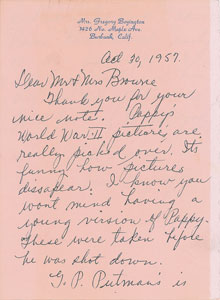 Mrs. Gregory Boyington
1926 No. Maple Ave.
Burbank, Calif.
Oct 30, 1957.
Dear Mr & Mrs Browne
Thank you for your
nice note. Pappy's
World War II pictures are
really picked over. Its
funny how pictures
dissapear. I know you
wont mind having a
young version of Pappy-
These were taken before
he was shot down.
G. P. Putman's is